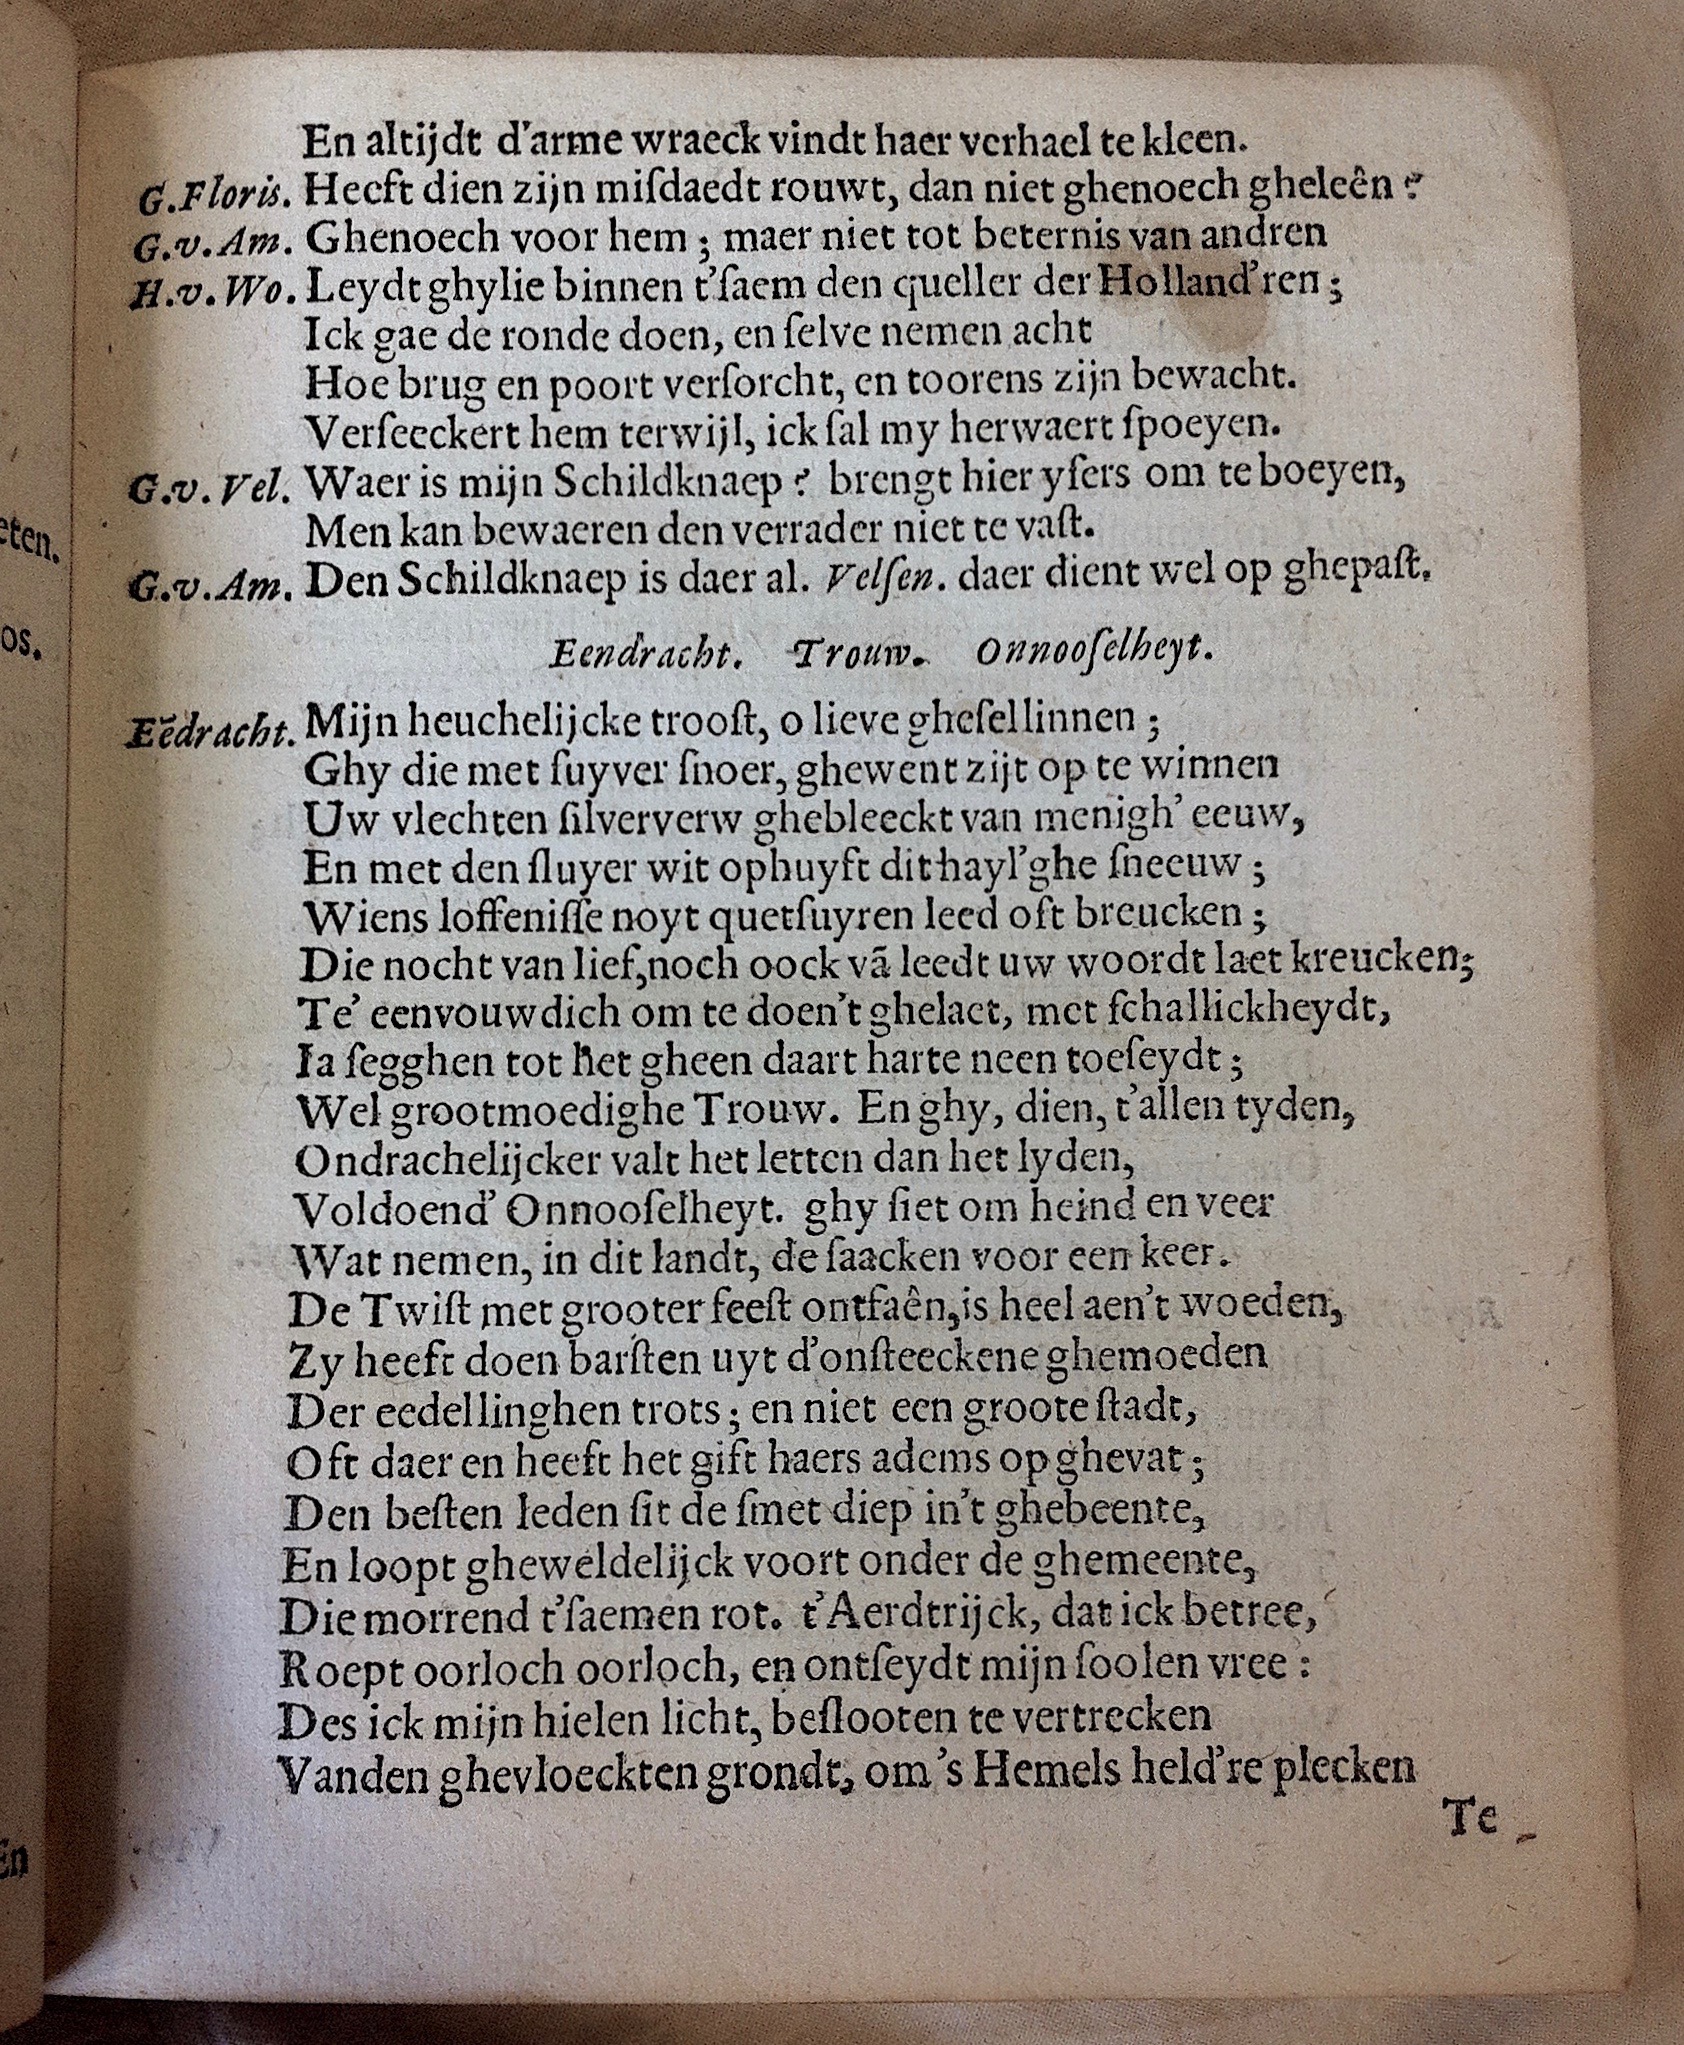 En altijdt d'arme wraeck vindt haer verhael te kleen.
G.Floris. Heeft dien zijn miſdaedt rouwt, dan niet ghenoech gheleên?
G.v.Am. Ghenoech voor hem; maer niet tot beternis van andren
H.v.Wo. Leydt ghylie binnen t'ſaem den queller der Holland'ren;
Ick gae de ronde doen, en ſelve nemen acht
Hoe brug en poort verſorcht, en toorens zijn bewacht.
Verſeeckert hem terwijl, ick ſal my herwaert ſpoeyen.
G.v.Vel. Waer is mijn Schildknaep? brengt hier yſers om te boeyen,
Men kan bewaeren den verrader niet te vaſt.
G.v.Am. Den Schildknaep is daer al. Velſen. daer dient wel op ghepaſt.
Eendracht. Trouw. Onnooſelheyt.
Eẽdracht. Mijn heuchelijcke trooſt, o lieve gheſellinnen;
Ghy die met ſuyver ſnoer, ghewent zijt op te winnen
Uw vlechten ſilververw ghebleeckt van menigh' eeuw,
En met den ſluyer wit ophuyft dit hayl'ghe ſneeuw;
Wiens loſſeniſſe noyt quetſuyren leed oft breucken;
Die nocht van lief, noch oock vã leedt uw woordt laet kreucken;
Te' eenvouwdich om te doen't ghelaet, met ſchallickheydt,
Ia ſegghen tot het gheen daart harte neen toeſeydt;
Wel grootmoedighe Trouw. En ghy, dien, t'allen tyden,
Ondrachelijcker valt het letten dan het lyden,
Voldoend' Onnooſelheyt. ghy ſiet om heind en veer
Wat nemen, in dit landt, de ſaacken voor een keer.
De Twiſt met grooter feeſt ontfaên, is heel aen't woeden,
Zy heeft doen barſten uyt d'onſteeckene ghemoeden
Der eedellinghen trots; en niet een groote ſtadt,
Oft daer en heeft het gift haers adems op ghevat;
Den beſten leden ſit de ſmet diep in't ghebeente,
En loopt gheweldelijck voort onder de ghemeente,
Die morrend t'ſaemen rot. t'Aerdtrijck, dat ick betree,
Roept oorloch oorloch, en ontſeydt mijn ſoolen vree:
Des ick mijn hielen licht, beſlooten te vertrecken
Vanden ghevloeckten grondt, om 's Hemels held're plecken
Te
eten.
os.
En